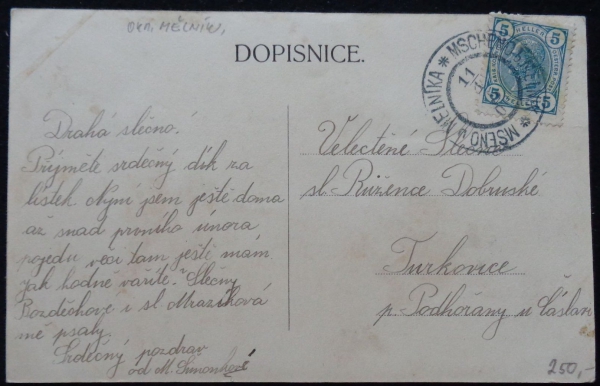 OKR. MĚLNÍK,
DOPISNICE.
5 HELLER 5
5 5
MSCHENO
MŠENO U MĚLNÍKA
11
Drahá slečno!
Přijměte srdečný dík za
lístek. Nyní jsem ještě doma
až snad prvního února
pojedu věci tam ještě mám.
jak hodně vaříte. Slečny
Rozděchove i sl. Mrazíkova
mě psaly.
Srdečný pozdrav
od M.
Velectěné Slečně
sl. Růžence Dobruské
Turkovice
p. Podhořany u Čáslavi
250,-